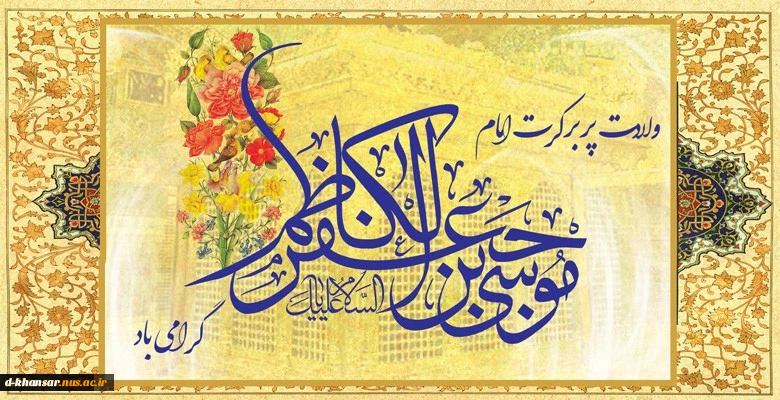 ولادت پر برکت امام
موسی بن جعفر الکاظم
السلام علیک
گرامی باد
d-khansar.nus.ac.ir